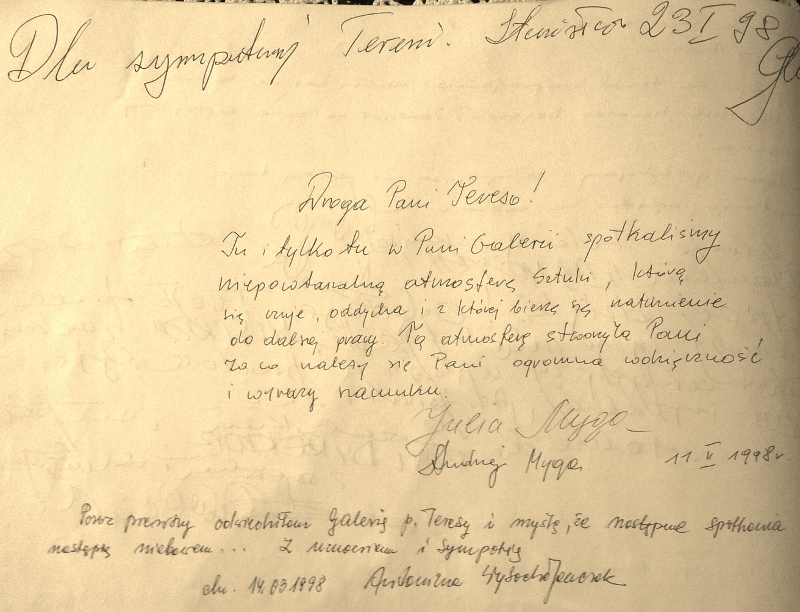 Dla sympatycznej Tereni. 23 I 98
Droga Pani Tereso!
Tu i tylko tu w Pani Galerii spotkaliśmy
niepowtarzalną atmosferę Sztuki, którą
się czuje, oddycha i z której bierze się natchnienie
do dalszej pracy. Tą atmosferę stworzyła Pani
za co należy się Pani ogromna wdzięczność
i wyrazy szacunku.
Julia Myga
Andrzej Myga 11.II 1998r.
Poraz pierwszy odwiedziłam Galerię p. Teresy i myślę, że następne spotkania
nastąpią niebawem... Z uznaniem i Sympatią
dn. 14.03 1998 Antonina